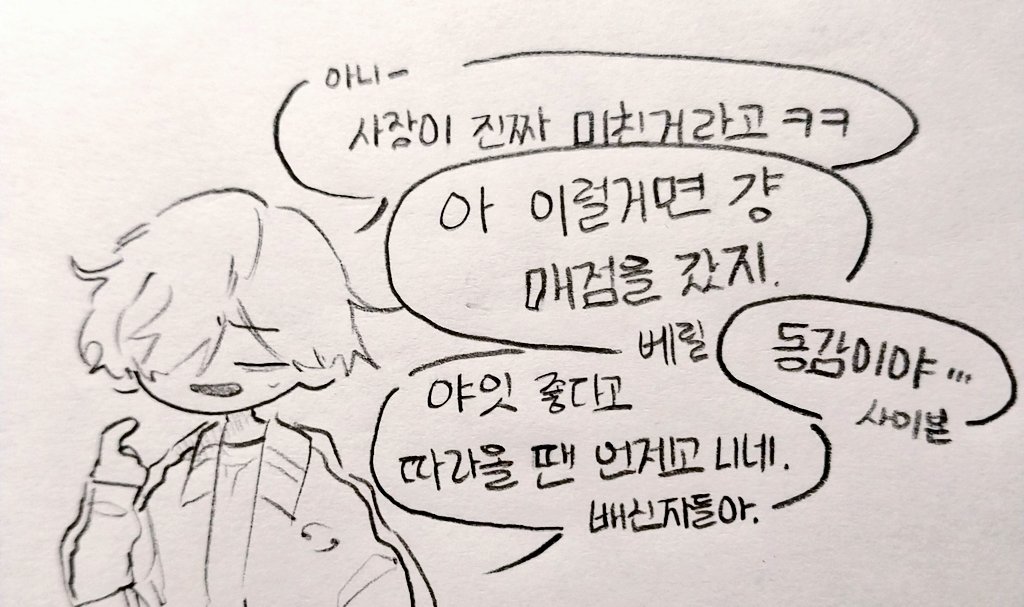 아니-
사장이 진짜 미친거라고 ㅋㅋ
아 이럴거면 걍
매점을 갔지.
베릴
동감이야...
사이본
야잇 좋다고
따라올 땐 언제고 니네.
배신자들아.